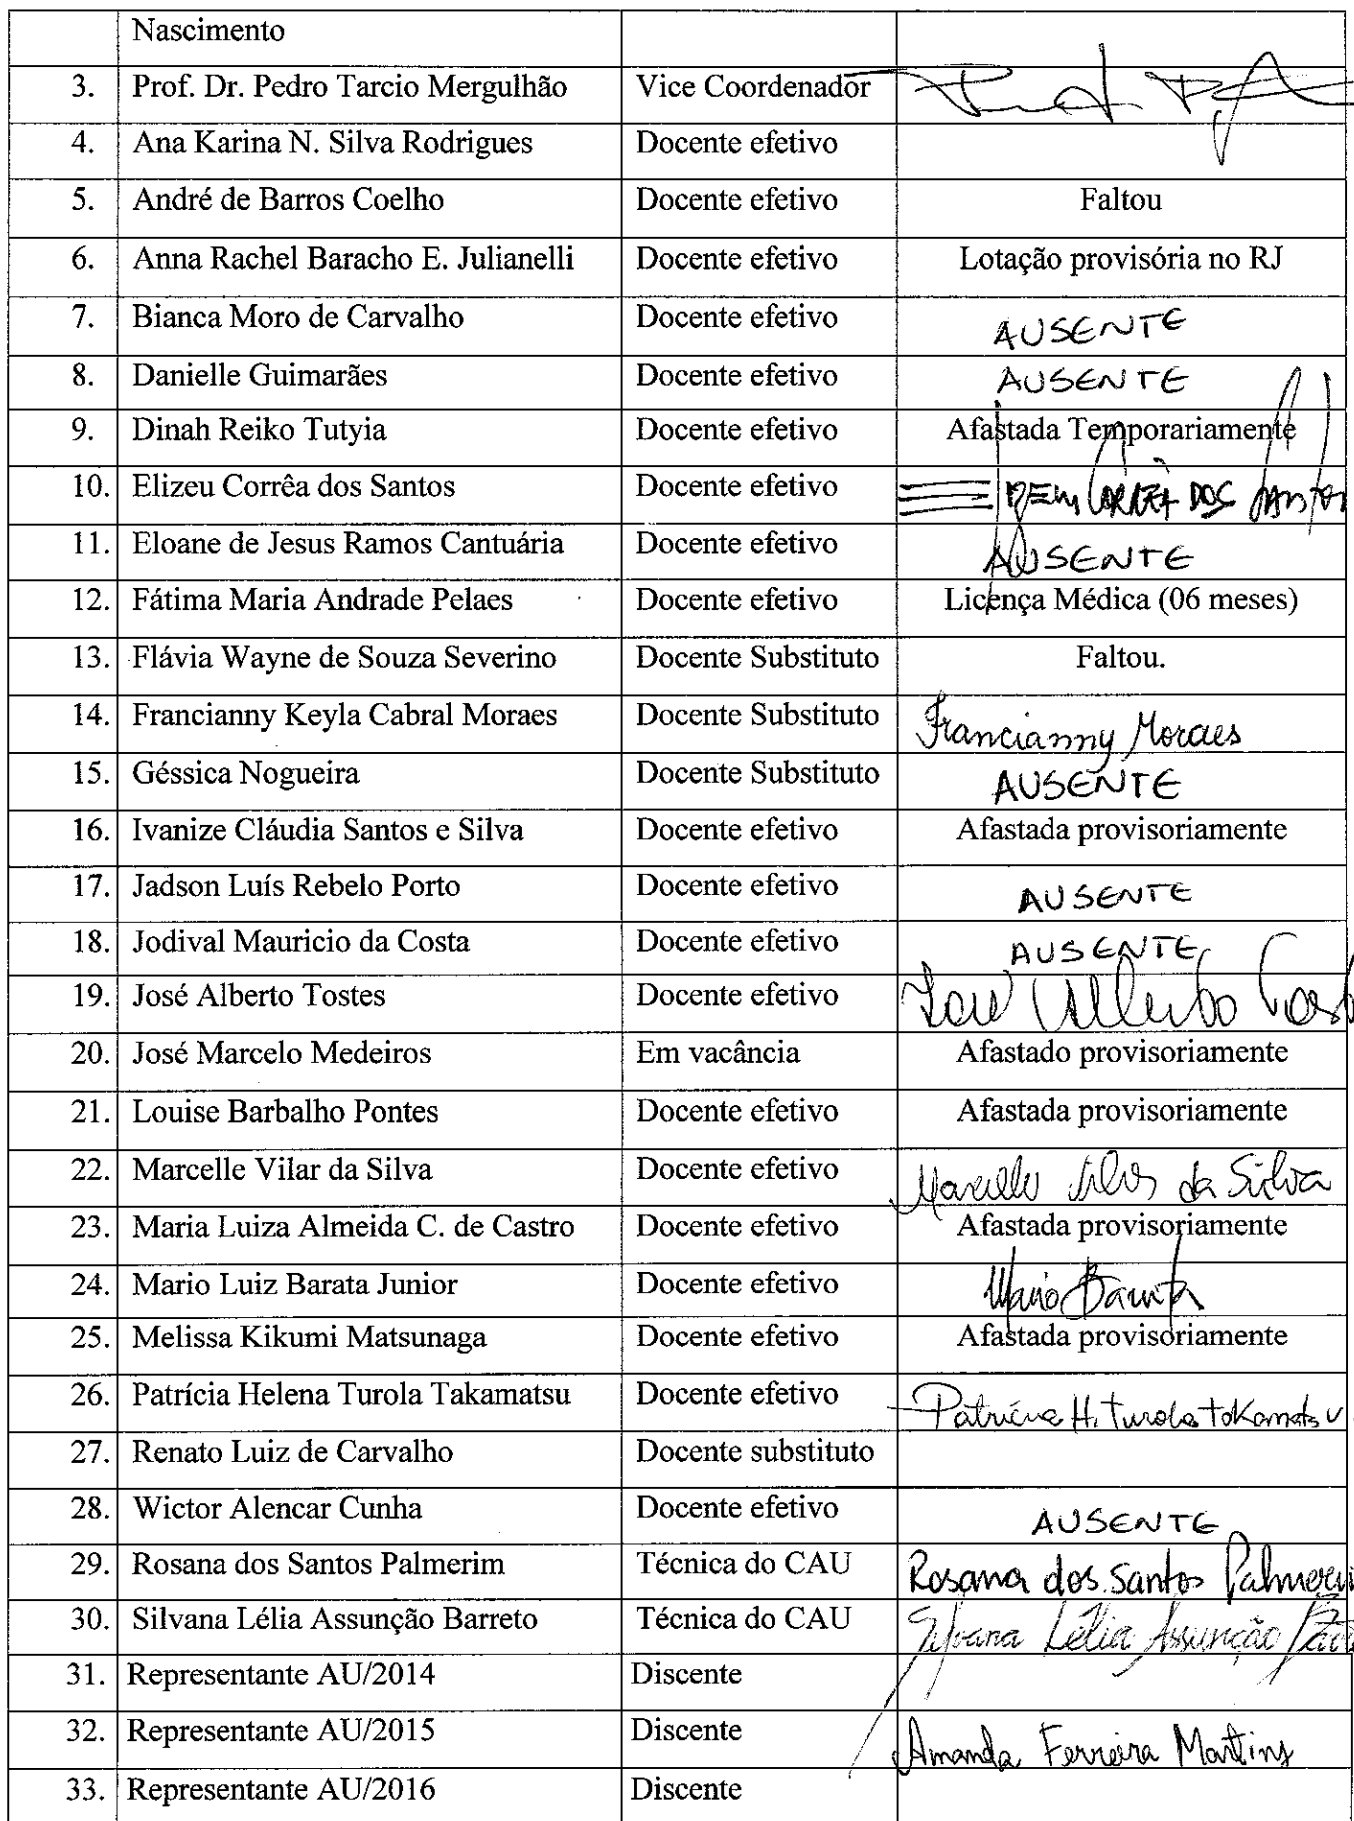 Nascimento
3. Prof. Dr. Pedro Tarcio Mergulhão Vice Coordenador
4. Ana Karina N. Silva Rodrigues Docente efetivo
5. André de Barros Coelho Docente efetivo Faltou
6. Anna Rachel Baracho E. Julianelli Docente efetivo Lotação provisória no RJ
7. Bianca Moro de Carvalho Docente efetivo AUSENTE
8. Danielle Guimarães Docente efetivo AUSENTE
9. Dinah Reiko Tutyia Docente efetivo Afastada Temporariamente
10. Elizeu Corrêa dos Santos Docente efetivo DOS
11. Eloane de Jesus Ramos Cantuária Docente efetivo AUSENTE
12. Fátima Maria Andrade Pelaes Docente efetivo Licença Médica (06 meses)
13. Flávia Wayne de Souza Severino Docente Substituto Faltou.
14. Francianny Keyla Cabral Moraes Docente Substituto Francianny Moraes
15. Géssica Nogueira Docente Substituto AUSENTE
16. Ivanize Cláudia Santos e Silva Docente efetivo Afastada provisoriamente
17. Jadson Luís Rebelo Porto Docente efetivo AUSENTE
18. Jodival Mauricio da Costa Docente efetivo AUSENTE
19. José Alberto Tostes Docente efetivo José Alberto
20. José Marcelo Medeiros Em vacância Afastado provisoriamente
21. Louise Barbalho Pontes Docente efetivo Afastada provisoriamente
22. Marcelle Vilar da Silva Docente efetivo Marcelle Vilar da Silva
23. Maria Luiza Almeida C. de Castro Docente efetivo Afastada provisoriamente
24. Mario Luiz Barata Junior Docente efetivo Mario Barata
25. Melissa Kikumi Matsunaga Docente efetivo Afastada provisoriamente
26. Patrícia Helena Turola Takamatsu Docente efetivo Patrícia H. Turola Takamatsu
27. Renato Luiz de Carvalho Docente substituto
28. Wictor Alencar Cunha Docente efetivo AUSENTE
29. Rosana dos Santos Palmerim Técnica do CAU Rosana dos Santos Palmeri
30. Silvana Lélia Assunção Barreto Técnica do CAU Silvana Lélia Assunção
31. Representante AU/2014 Discente
32. Representante AU/2015 Discente Amanda Ferreira Martins
33. Representante AU/2016 Discente